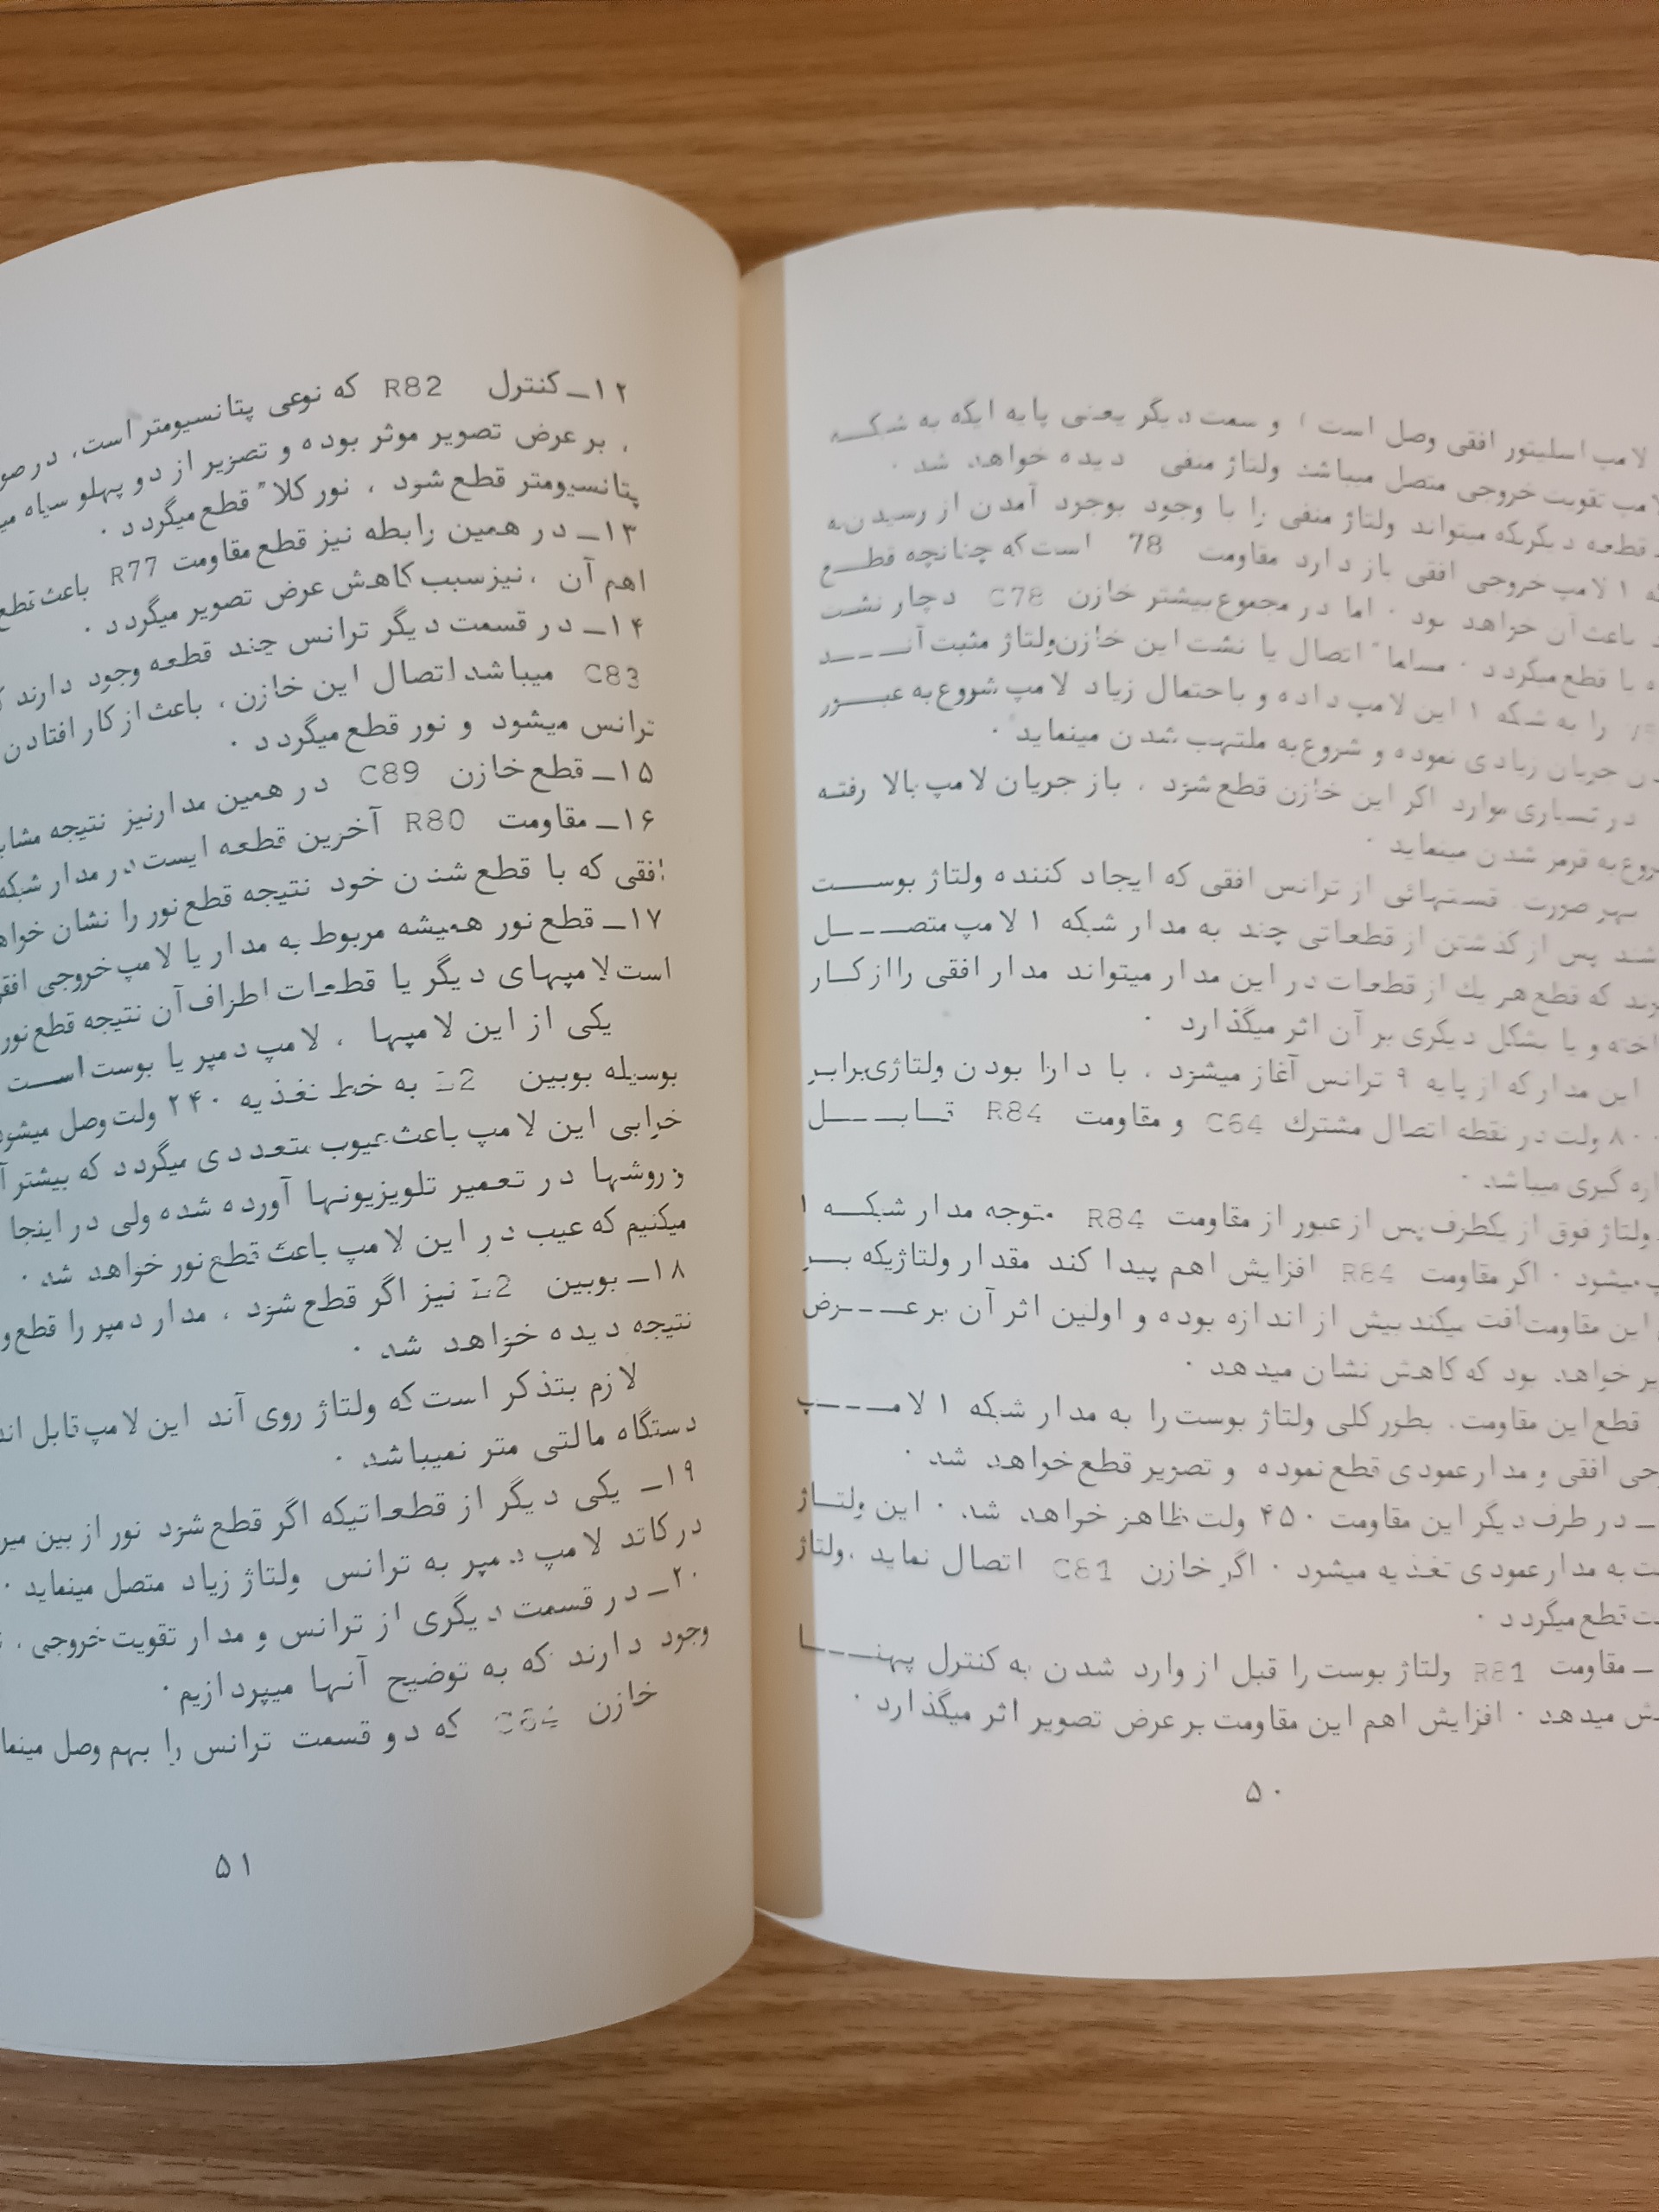 لامپ اسلیتور افقی وصل است ) و سمت دیگر یعنی پایه ایکه به شکــه
تقویت خروجی متصل میباشد ولتاژ منفی دیده خواهد شد ٠
قطعه دیگریکه میتواند ولتاژ منفی را با وجود بوجود آمدن از رسیدن به
۱ لامپ خروجی افقی باز دارد مقاومت 78 است که چنانچه قطــع
باعث آن خواهد بود ٠ اما در مجموع بیشتر خازن C78 دچار نشت
یا قطع میگردد ٠ اتصال یا نشت این خازن ولتاژ مثبت آنــــد
را به شکه ۱ این لامپ داده و باحتمال زیاد لامپ شروع به عبــور
جریان زیادی نموده و شروع به ملتهب شدن مینماید ٠
در بسیاری موارد اگر این خازن قطع شود ، باز جریان لامپ بالا رفته
به قرمز شدن مینماید ٠
بهر صورت قسمتهائی از ترانس افقی که ایجاد کننده ولتاژ بوســت
پس از گذشتن از قطعاتی چند به مدار شبکه ۱ لامپ متصــــل
که قطع هر یك از قطعات در این مدار میتواند مدار افقی را از کــار
و یا بشکل دیگری بر آن اثر میگذارد ٠
این مدار که از پایه ۹ ترانس آغاز میشود ، با دارا بودن ولتاژی برابــر
۸۰۰ ولت در نقطه اتصال مشترك C64 و مقاومت R84 قــابــــل
گیری میباشد ٠
ولتاژ فوق از یکطرف پس از عبور از مقاومت R84 متوجه مدار شبکــه ۱
میشود ٠ اگر مقاومت R84 افزایش اهم پیدا کند مقدار ولتاژیکه بــر
این مقاومت افت میکند بیش از اندازه بوده و اولین اثر آن بر عــــرض
خواهد بود که کاهش نشان میدهد ٠
قطع این مقاومت، بطور کلی ولتاژ بوست را به مدار شبکه ۱ لامــــپ
افقی و مدار عمودی قطع نموده و تصویر قطع خواهد شد ٠
ــ در طرف دیگر این مقاومت ۴۵۰ ولت ظاهر خواهد شد ٠ این ولتــاژ
به مدار عمودی تغذیه میشود ٠ اگر خازن C81 اتصال نماید ،ولتاژ
قطع میگردد ٠
ــ مقاومت R81 ولتاژ بوست را قبل از وارد شدن به کنترل پهنــــا
میدهد ٠ افزایش اهم این مقاومت بر عرض تصویر اثر میگذارد ٠
۵۰
۱۲ــ کنترل R82 که نوعی پتانسیومتر است، در
، بر عرض تصویر موثر بوده و تصویر از دو پهلو سیاه
پتانسیومتر قطع شود ، نور کلا" قطع میگردد ٠
۱۳ــ در همین رابطه نیز قطع مقاومت R77 باعث قطع
اهم آن ،نیز سبب کاهش عرض تصویر میگردد ٠
۱۴ــ در قسمت دیگر ترانس چند قطعه وجود دارند
C83 میباشد اتصال این خازن ، باعث از کار افتادن
ترانس میشود و نور قطع میگردد ٠
۱۵ــ قطع خازن C89 در همین مدار نیز نتیجه
۱۶ــ مقاومت R80 آخرین قطعه ایست در مدار شبکه
افقی که با قطع شدن خود نتیجه قطع نور را نشان
۱۷ــ قطع نور همیشه مربوط به مدار یا لامپ خروجی
است لامپهای دیگر یا قطعات اطراف آن نتیجه قطع نور
یکی از این لامپها ، لامپ دمپر یا بوست اســت
بوسیله بوبین L2 به خط تغذیه ۲۴۰ ولت وصل میشود
خرابی این لامپ باعث عیوب متعددی میگردد که بیشتر
و روشها در تعمیر تلویزیونها آورده شده ولی در اینجا
میکنیم که عیب در این لامپ باعث قطع نور خواهد شد ٠
۱۸ــ بوبین L2 نیز اگر قطع شود ، مدار دمپر را قطع و
نتیجه دیده خواهد شد ٠
لازم بتذکر است که ولتاژ روی آند این لامپ قابل
دستگاه مالتی متر نمیباشد ٠
۱۹ــ یکی دیگر از قطعاتیکه اگر قطع شود نور از بین
در کاتد لامپ دمپر به ترانس ولتاژ زیاد متصل مینماید ٠
۲۰ــ در قسمت دیگری از ترانس و مدار تقویت خروجی ،
وجود دارند که به توضیح آنها میپردازیم ٠
خازن C64 که دو قسمت ترانس را بهم وصل
۵۱